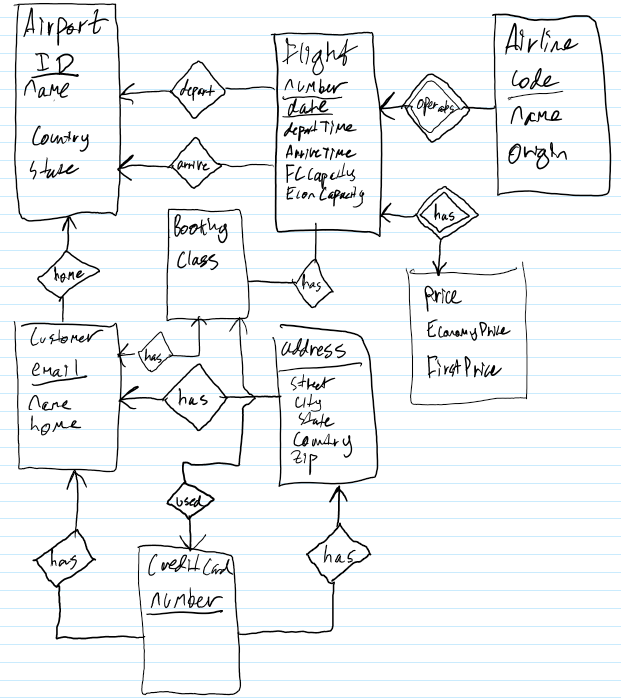 Airport
ID
name
Country
state
depart
arrive
Flight
number
date
depart Time
Arrive Time
FC Capacity
Econ Capacity
operates
Airline
code
name
Origin
has
price
Economy Price
First Price
home
Booking
Class
has
Customer
email
name
home
has
has
address
street
city
state
Country
Zip
used
has
Credit Card
number
has